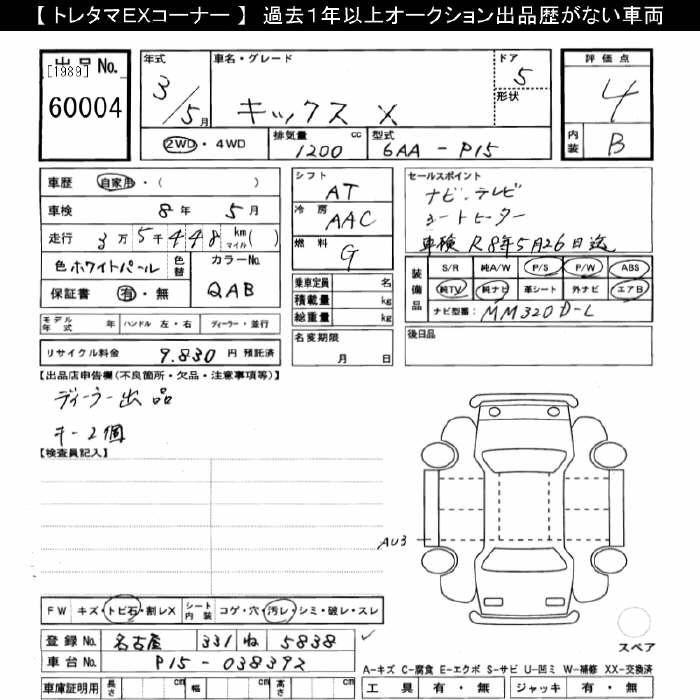 【 トレタマＥＸコーナー 】 過去１年以上オークション出品歴がない車両
出品No.
[1989]
60004
年式
3/5月
車名・グレード
キックス X
ドア
5
形状
2WD・4WD
排気量 cc
1200
型式
6AA - P15
評価点
4
内装
B
車歴 自家用・( )
車検 8年 5月
走行 3万5千448 km マイル( )
色 ホワイトパール
色替
カラーNo.
QAB
保証書 有・無
シフト
AT
冷房
AAC
燃料
G
乗車定員 名
積載量 kg
総重量 kg
セールスポイント
ナビ・テレビ
シートヒーター
車検 R8年5月26日迄
装備品
S/R 純A/W P/S P/W ABS
純TV 純ナビ 革シート 外ナビ エアB
ナビ型番: MM320D-L
モデル年式 年 ハンドル 左・右 ディーラー・並行
名変期限
月 日
後日品
リサイクル料金 9.830 円 預託済
【出品店申告欄(不良箇所・欠品・注意事項等)】
ディーラー出品
キー2個
【検査員記入】
AU3
FW キズ・トビ石・割レX シート内装 コゲ・穴・汚レ・シミ・破レ・スレ
登録No. 名古屋 331 ね 5838
車台No. P15 - 038392
スペア
A-キズ C-腐食 E-エクボ S-サビ U-凹ミ W-補修 XX-交換済
車庫証明用 長さ cm 幅 cm 高さ cm
工具 有・無 ジャッキ 有・無